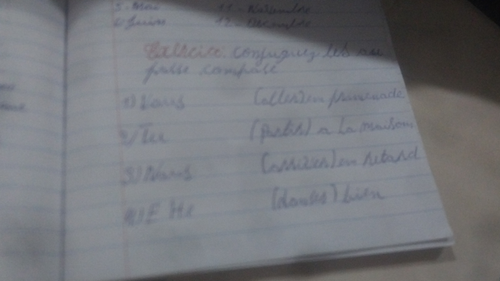 5. Mai 11. Novembre
6. Juin 12. Décembre
Exercice conjuguez les au
passé composé
1) Vous (aller) en promenade
2) Tu (partir) a La maison
3) Nous (arriver) en retard
4) Elle bien